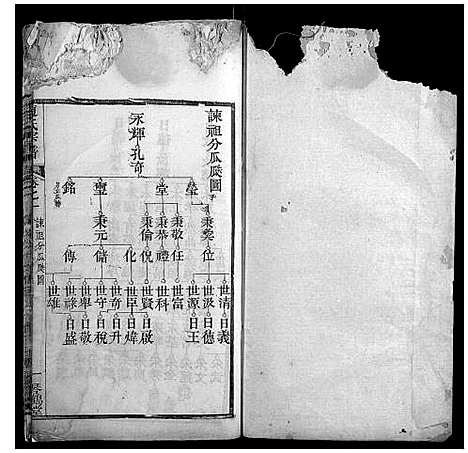 諫祖分瓜瓞圖
永輝 孔奇
瑩 堂 璽 銘
秉奭 秉敬 秉恭 秉倫 秉元
位 任 禮 倪 化 儲 傳
世清 世汲 世源 世富 世科 世賢 世臣 世奇 世守 世舉 世祿 世雄
日義 日德 日王 日啟 日煒 日升 日稅 日敬 日盛
諫祖分瓜瓞圖